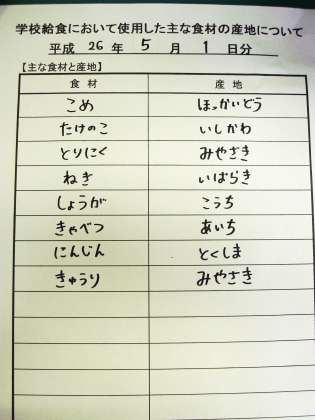 学校給食において使用した主な食材の産地について
平成 26 年 5 月 1 日分
【主な食材と産地】
食材 産地
こめ ほっかいどう
たけのこ いしかわ
とりにく みやざき
ねぎ いばらき
しょうが こうち
きゃべつ あいち
にんじん とくしま
きゅうり みやざき